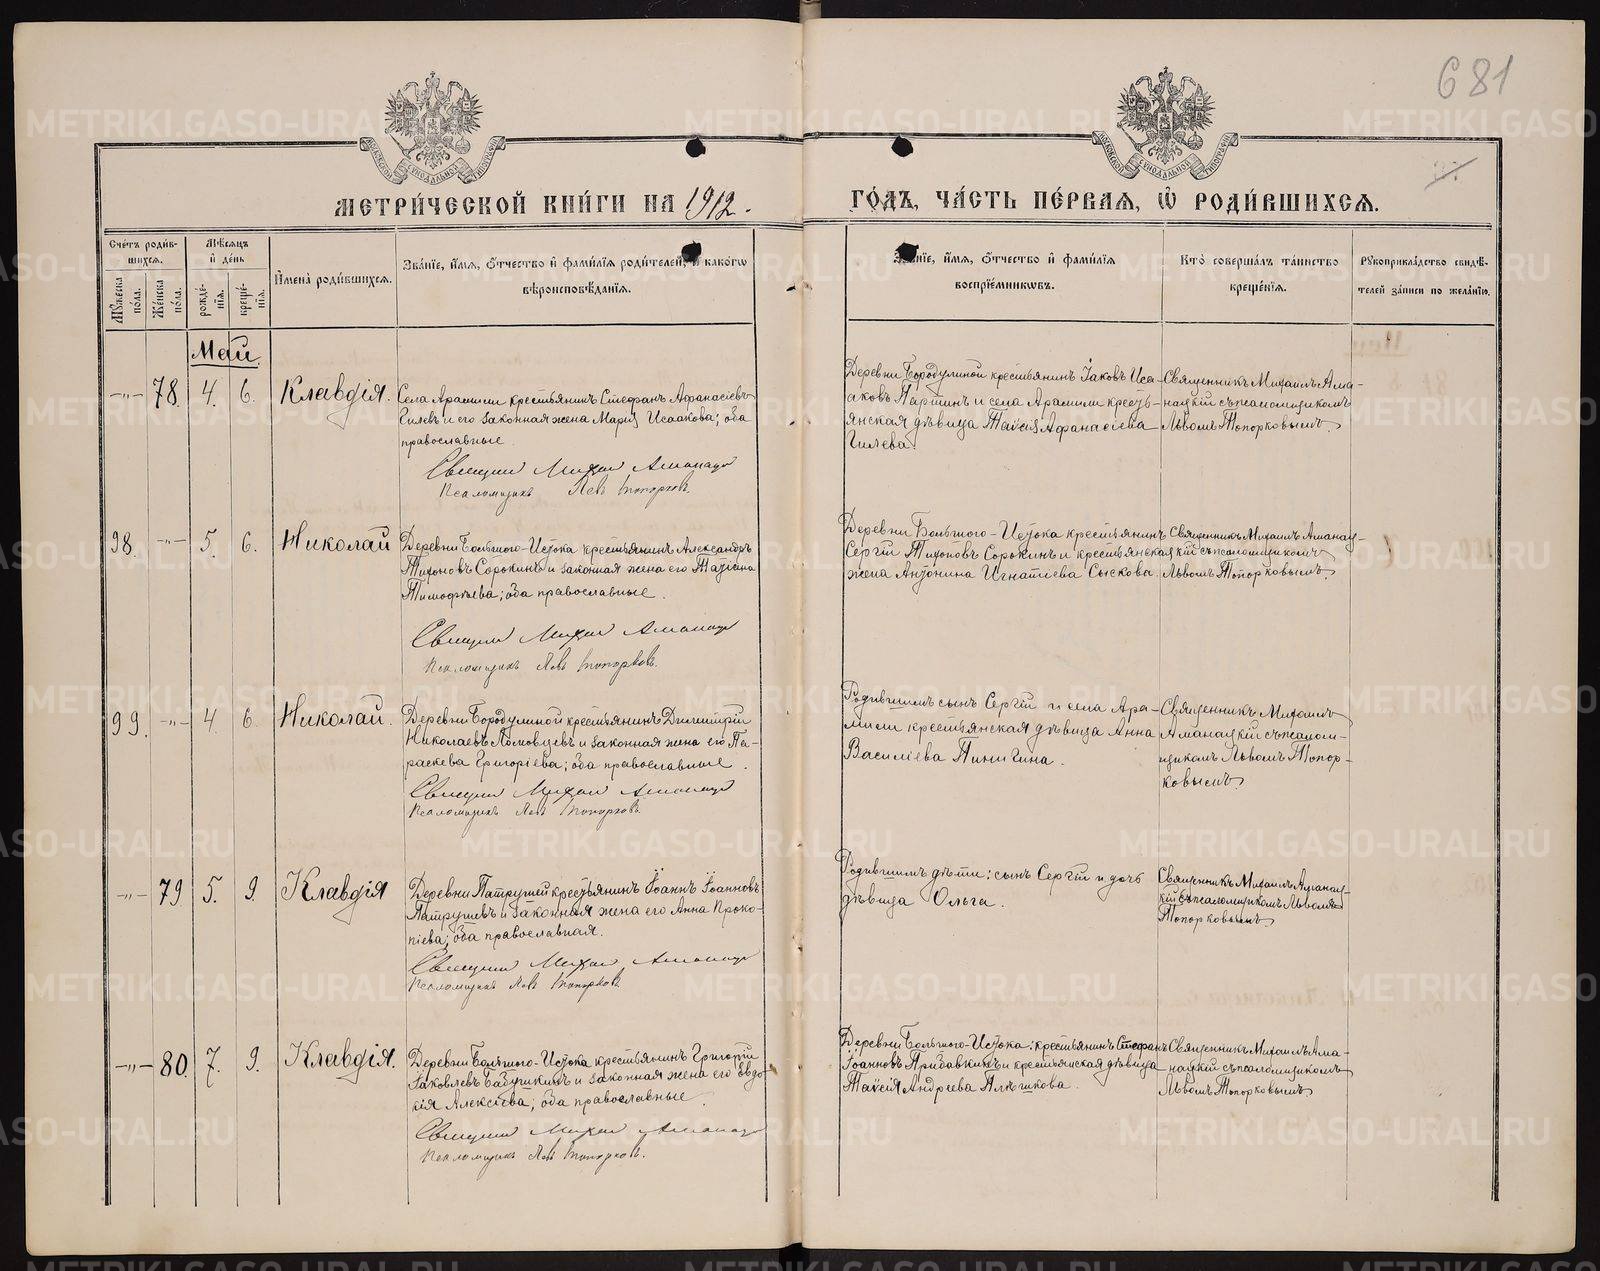 681
МЕТРИ́ЧЕСКОЙ КНИ́ГИ НА 1912.
ГО́ДЪ, ЧА́СТЬ ПЕ́РВАЯ, Ѽ РОДИ́ВШИХСЯ.
Сче́тъ роди́в-
шихся.
Мѣ́сяцъ
и҆ де́нь
И҆мена̀ роди́вшихся.
Зва́нїе, и҆́мя, о҆́тчество и҆ фами́лїя роди́телей, и҆ како́гѡ
вѣроисповѣ́данїя.
Мꙋ́жеска
по́ла.
Же́нска
по́ла.
рожде́-
нїя.
креще́-
нїя.
Зва́нїе, и҆́мя, о҆́тчество и҆ фами́лїя
воспрїе́мникѡвъ.
Кто̀ соверша́лъ та́инство
креще́нїя.
Рꙋкоприкла́дство свидѣ́-
телей за́писи по жела́нїю.
Май
—"— 78. 4. 6. Клавдія.
Села Арамили крестьянинъ Стефанъ Афанасіевъ
Гилевъ и его законная жена Марія Исаакова; оба
православные.
Священ Михаил Аманац
Псаломщикъ Левъ Топорковъ.
Деревни Бородулиной крестьянинъ Іаковъ Иса-
аковъ Паршинъ и села Арамили кресть-
янская дѣвица Таисія Афанасіева
Гилева.
Священникъ Михаилъ Ама-
нацкій съ псаломщикомъ
Львомъ Топорковымъ.
98. —"— 5. 6. Николай
Деревни Большого-Истока крестьянинъ Александръ
Тихоновъ Сорокинъ и законная жена его Татіана
Тимофѣева; оба православные.
Священ Михаил Аманац
Псаломщикъ Левъ Топорковъ.
Деревни Большого-Истока крестьянинъ
Сергій Тихоновъ Сорокинъ и крестьянская
жена Антонина Игнатіева Сыскова.
Священникъ Михаилъ Аманац-
кій съ псаломщикомъ
Львомъ Топорковымъ.
99. —"— 4 6 Николай.
Деревни Бородулиной крестьянинъ Димитрій
Николаевъ Ломовцевъ и законная жена его Па-
раскева Григоріева; оба православные.
Священ Михаил Аманац
Псаломщикъ Левъ Топорковъ.
Родившимъ сынъ Сергій и села Ара-
мили крестьянская дѣвица Анна
Василіева Пинигина.
Священникъ Михаилъ
Аманацкій съ псалом-
щикомъ Львомъ Топор-
ковымъ
—"— 79 5. 9. Клавдія
Деревни Патрушей крестьянинъ Іоаннъ Іоанновъ
Патрушевъ и законная жена его Анна Проко-
піева; оба православная.
Священ Михаил Аманац
Псаломщикъ Левъ Топорковъ
Родившимъ дѣти: сынъ Сергій и дочь
дѣвица Ольга.
Священникъ Михаилъ Аманац-
кій съ псаломщикомъ Львомъ
Топорковымъ
—"— 80. 7. 9. Клавдія.
Деревни Большого-Истока крестьянинъ Григорій
Іаковлевъ Бабушкинъ и законная жена его Евдо-
кія Алексѣева; оба православные.
Священ Михаил Аманац
Псаломщикъ Левъ Топорков.
Деревни Большого-Истока: крестьянинъ Стефанъ
Іоанновъ Прибавкинъ и крестьянская дѣвица
Таисія Андреева Плѣшкова.
Священникъ Михаилъ Ама-
нацкій съ псаломщикомъ
Львомъ Топорковымъ